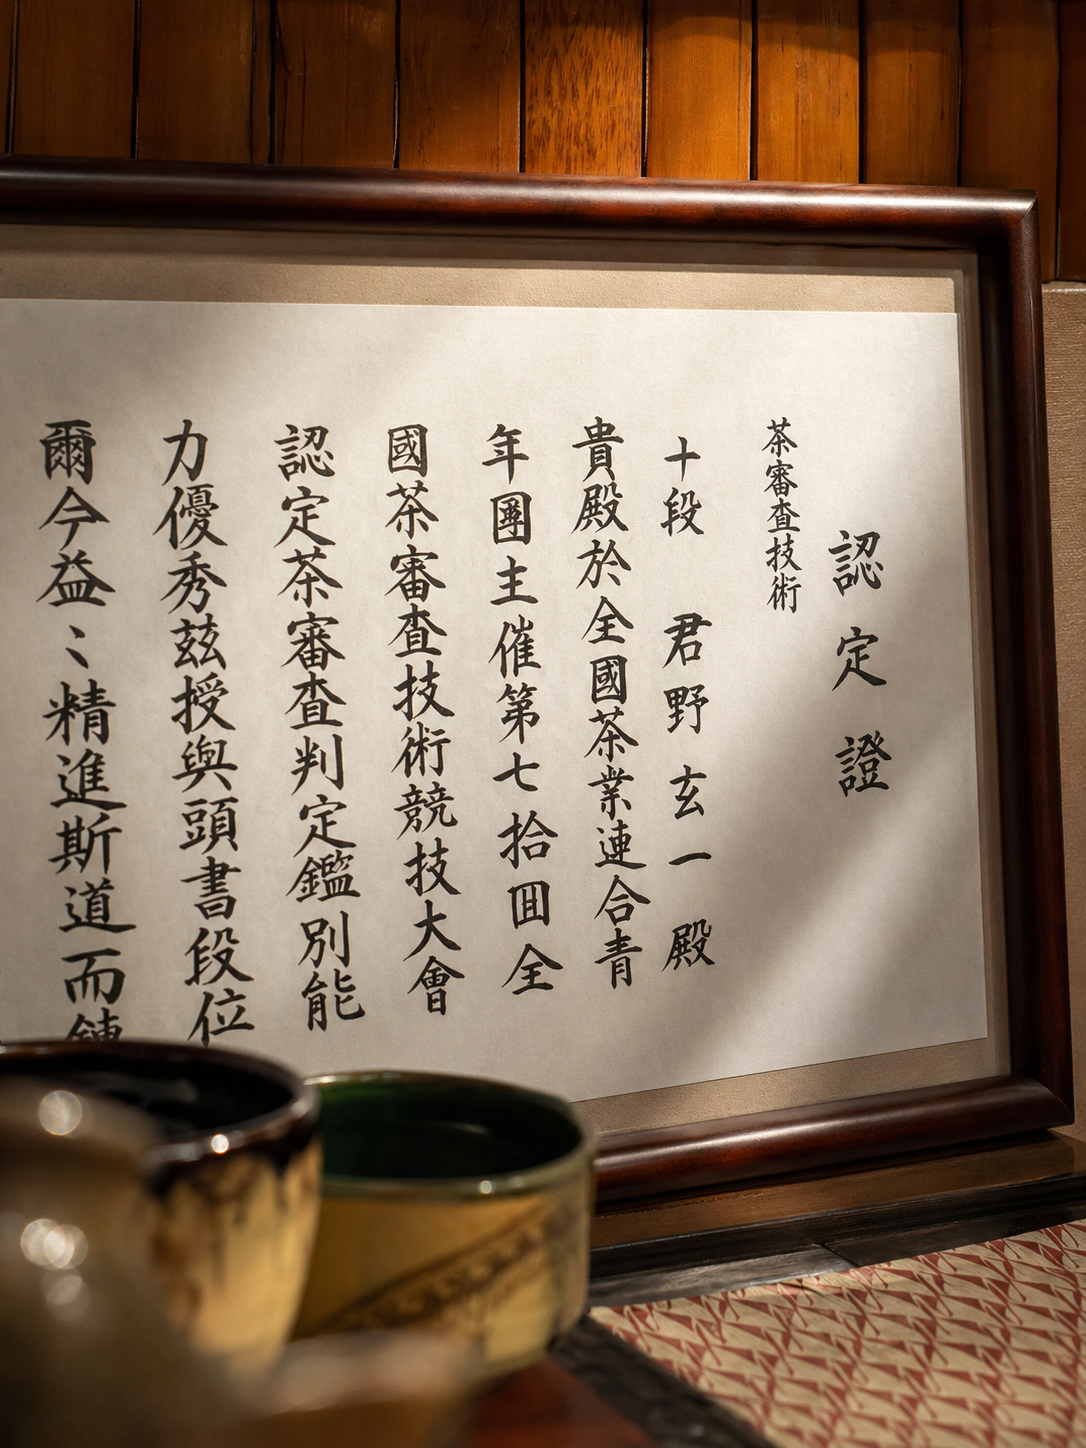 認定證
茶審査技術
十段 君野玄一殿
貴殿於全國茶業連合青
年團主催第七拾回全
國茶審査技術競技大會
認定茶審査判定鑑別能
力優秀茲授與頭書段位
爾今益〻精進斯道而